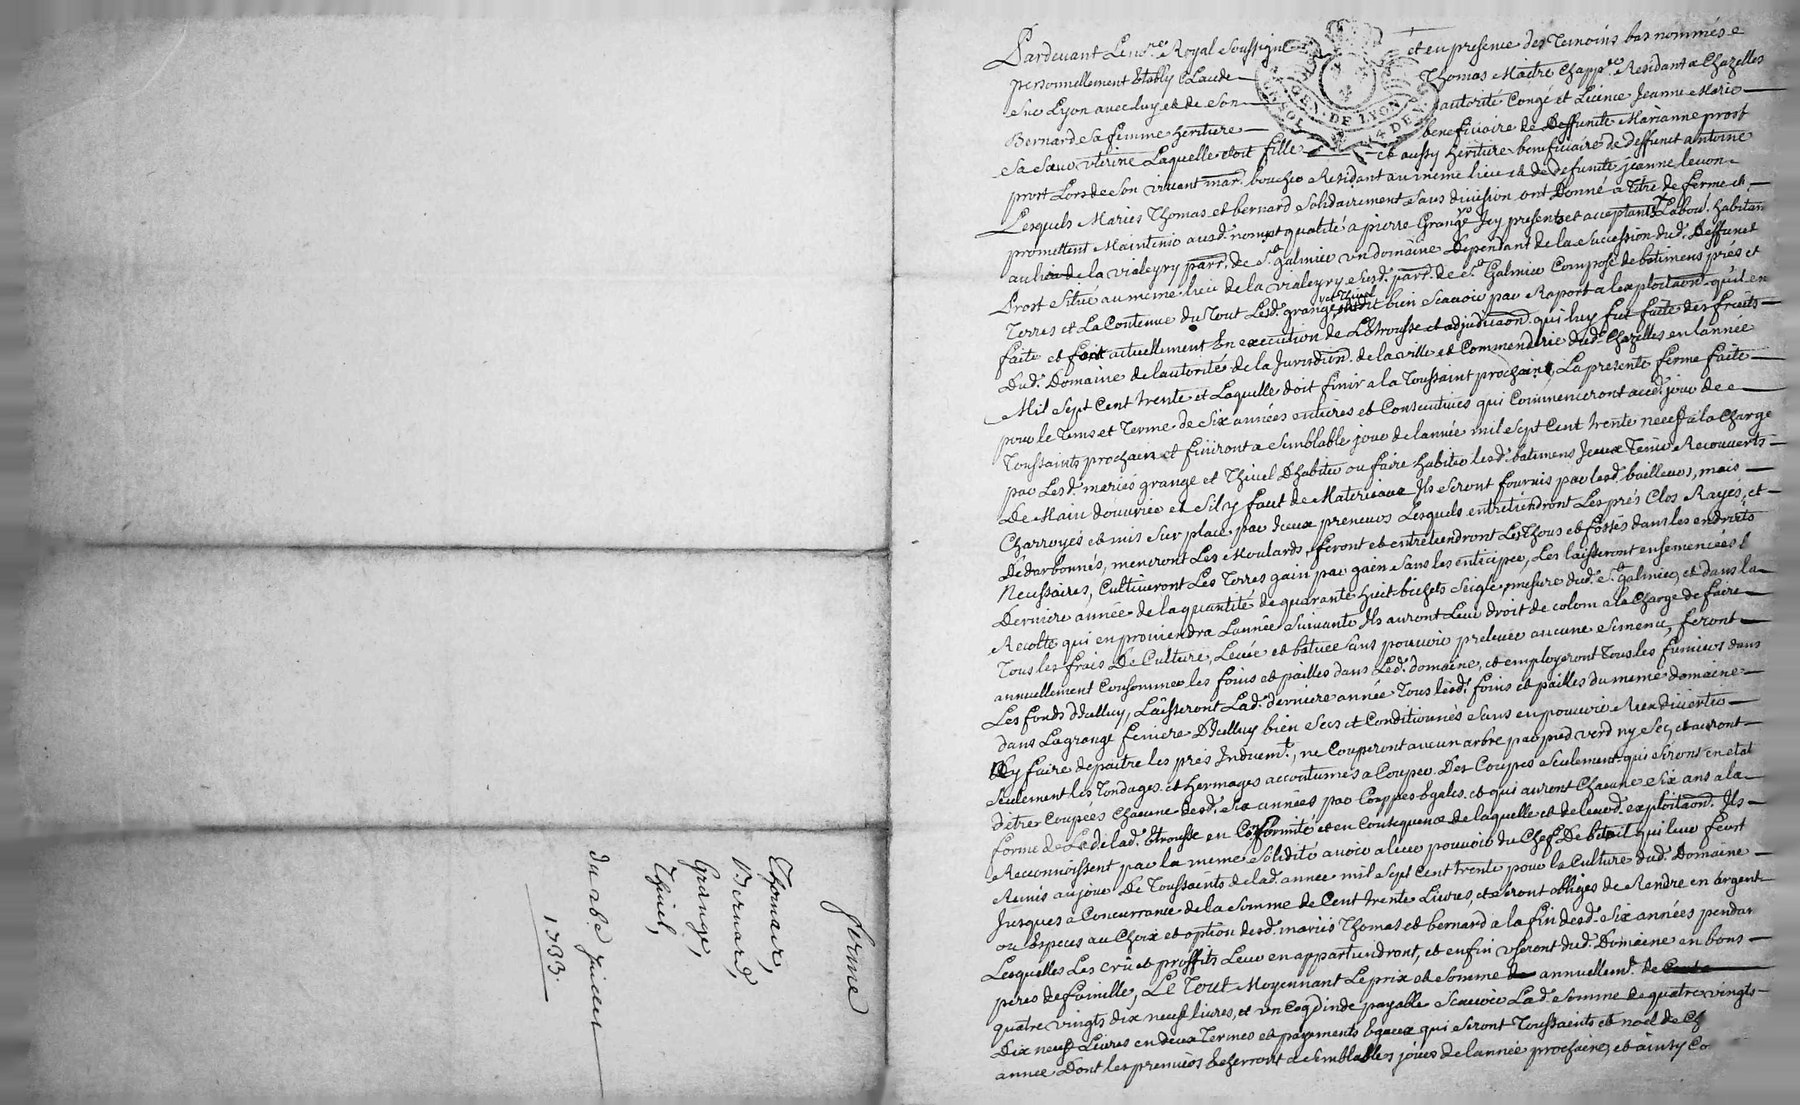 Ferme
Thomas,
Bernard,
Grange,
Thivel,
du 26e Juillet
1733
Pardevant Le nore Royal Soussigné et en presence des Temoins bas nommés
personnellement Etably Claude Thomas Maitre Chapper Residant a Chazelles
sur Lyon avec luy et de son autorité Congé et Licence Jeanne Marie
Bernard sa femme heritiere beneficiaire de deffunte Marianne prost
sa sœur uterine Laquelle etoit fille et aussy heritiere beneficiaire de deffunct antoine
prost Lors de son vivant mar. boucher Residant au meme lieu et de defunte jeanne
Lesquels Mariés Thomas et bernard solidairement sans division ont Donné a titre de ferme et
promettent Maintenir ausd. noms et qualité a pierre Grange Icy present et acceptant Labour. habitant
au lieu de la vialeyry parr. de St galmier un domaine dependant de la succession dud. Deffunct
Prost situé au meme lieu de la vialeyry susd. parr. de St Galmier Composé de batimens prés et
Terres et La Contenue du Tout Lesd. grange et Thivel bien scavoir par Raport a lexploitaon. quil en
faite et fait actuellement En execution de Letrousse et adjudicaon. qui luy fut faite des fruits
Dud. Domaine de lautorité de la Jurisdion. de la ville et Commenderie dud. Chazelles en lannée
Mil Sept Cent trente et Laquelle doit finir a la Toussaint prochain, La presente ferme faite
pour le Tems et Terme de Six années entieres et Consecutives qui Commenceront aud. jour de
Toussaints prochain et finiront a semblable jour de lannée mil sept Cent trente neuf a la Charge
par Lesd. mariés grange et Thivel Dhabiter ou faire habiter lesd. batimens Iceux Tenir Recouverts
De Main douvrier et Sil y faut de Materiaux Ils seront fournis par lesd. bailleurs, mais
Charroyés et mis sur place par Iceux preneurs Lesquels entretiendront Les prés Clos Rayés, et
Dedarbonnés, meneront Les Moulards, feront et entretiendront Les Thous et fossés dans les endroits
Necessaires, Cultiveront Les Terres gain par gaen sans les enticiper, Les laisseront ensemencées l
Derniere année de la quantité de quarante huit bichets seigle mesure dud. St galmier, et dans la
Recolte qui en proviendra Lannée suivante Ils auront Leur droit de colom a la Charge de faire
Tous les frais De Culture, Levée et batuee sans pouvoir prelever aucune Simence, feront
annuellement Consommer les foins et pailles dans Led. domaine, et employeront Tous les fumiers dans
Les fonds Dicelluy, Laisseront Lad. derniere année Tous lesd. foins et pailles du meme domaine
dans La grange feniere Dicelluy bien secs et Conditionnés sans en pouvoir Rien divertir
Ny faire depaitre les prés Induemt., ne Couperont aucun arbre par pied verd ny sec, et auront
seulement les Tondages et hermages accoutumés a Couper Des Coupes seulement qui seront en etat
d'etre Coupées Chacune desd. six années par Couppes Egales et qui auront Chacune six ans a la
forme de La de lad. Etrousse en Conformité et en Consequence de laquelle et de leurd. exploitaon. Ils
Reconnoissent par la meme solidité avoir a leur pouvoir du Chef De betail qui leur feust
Remis au jour De Toussaints de lad. année mil sept Cent trente pour la Culture dud. Domaine
Jusques a Concurrance de la somme de Cent trente Livres, et seront obligés de Rendre en argent
ou Especes au Choix et option desd. mariés Thomas et bernard a la fin desd. six années pendant
Lesquelles Les crû et proffits Leur en appartiendront, et enfin useront dud. Domaine en bons
peres de famille, Le Tout Moyennant Le prix et somme annuellemt. de
quatre vingts dix neuf livres, et un Coq dinde payable scavoir Lad. somme de quatre vingts
Dix neuf Livres en deux Termes et payements Egaux qui seront Toussaints et noel de Ch
année Dont les premiers Echerront a semblables jours de lannée prochaine, et ainsy Co